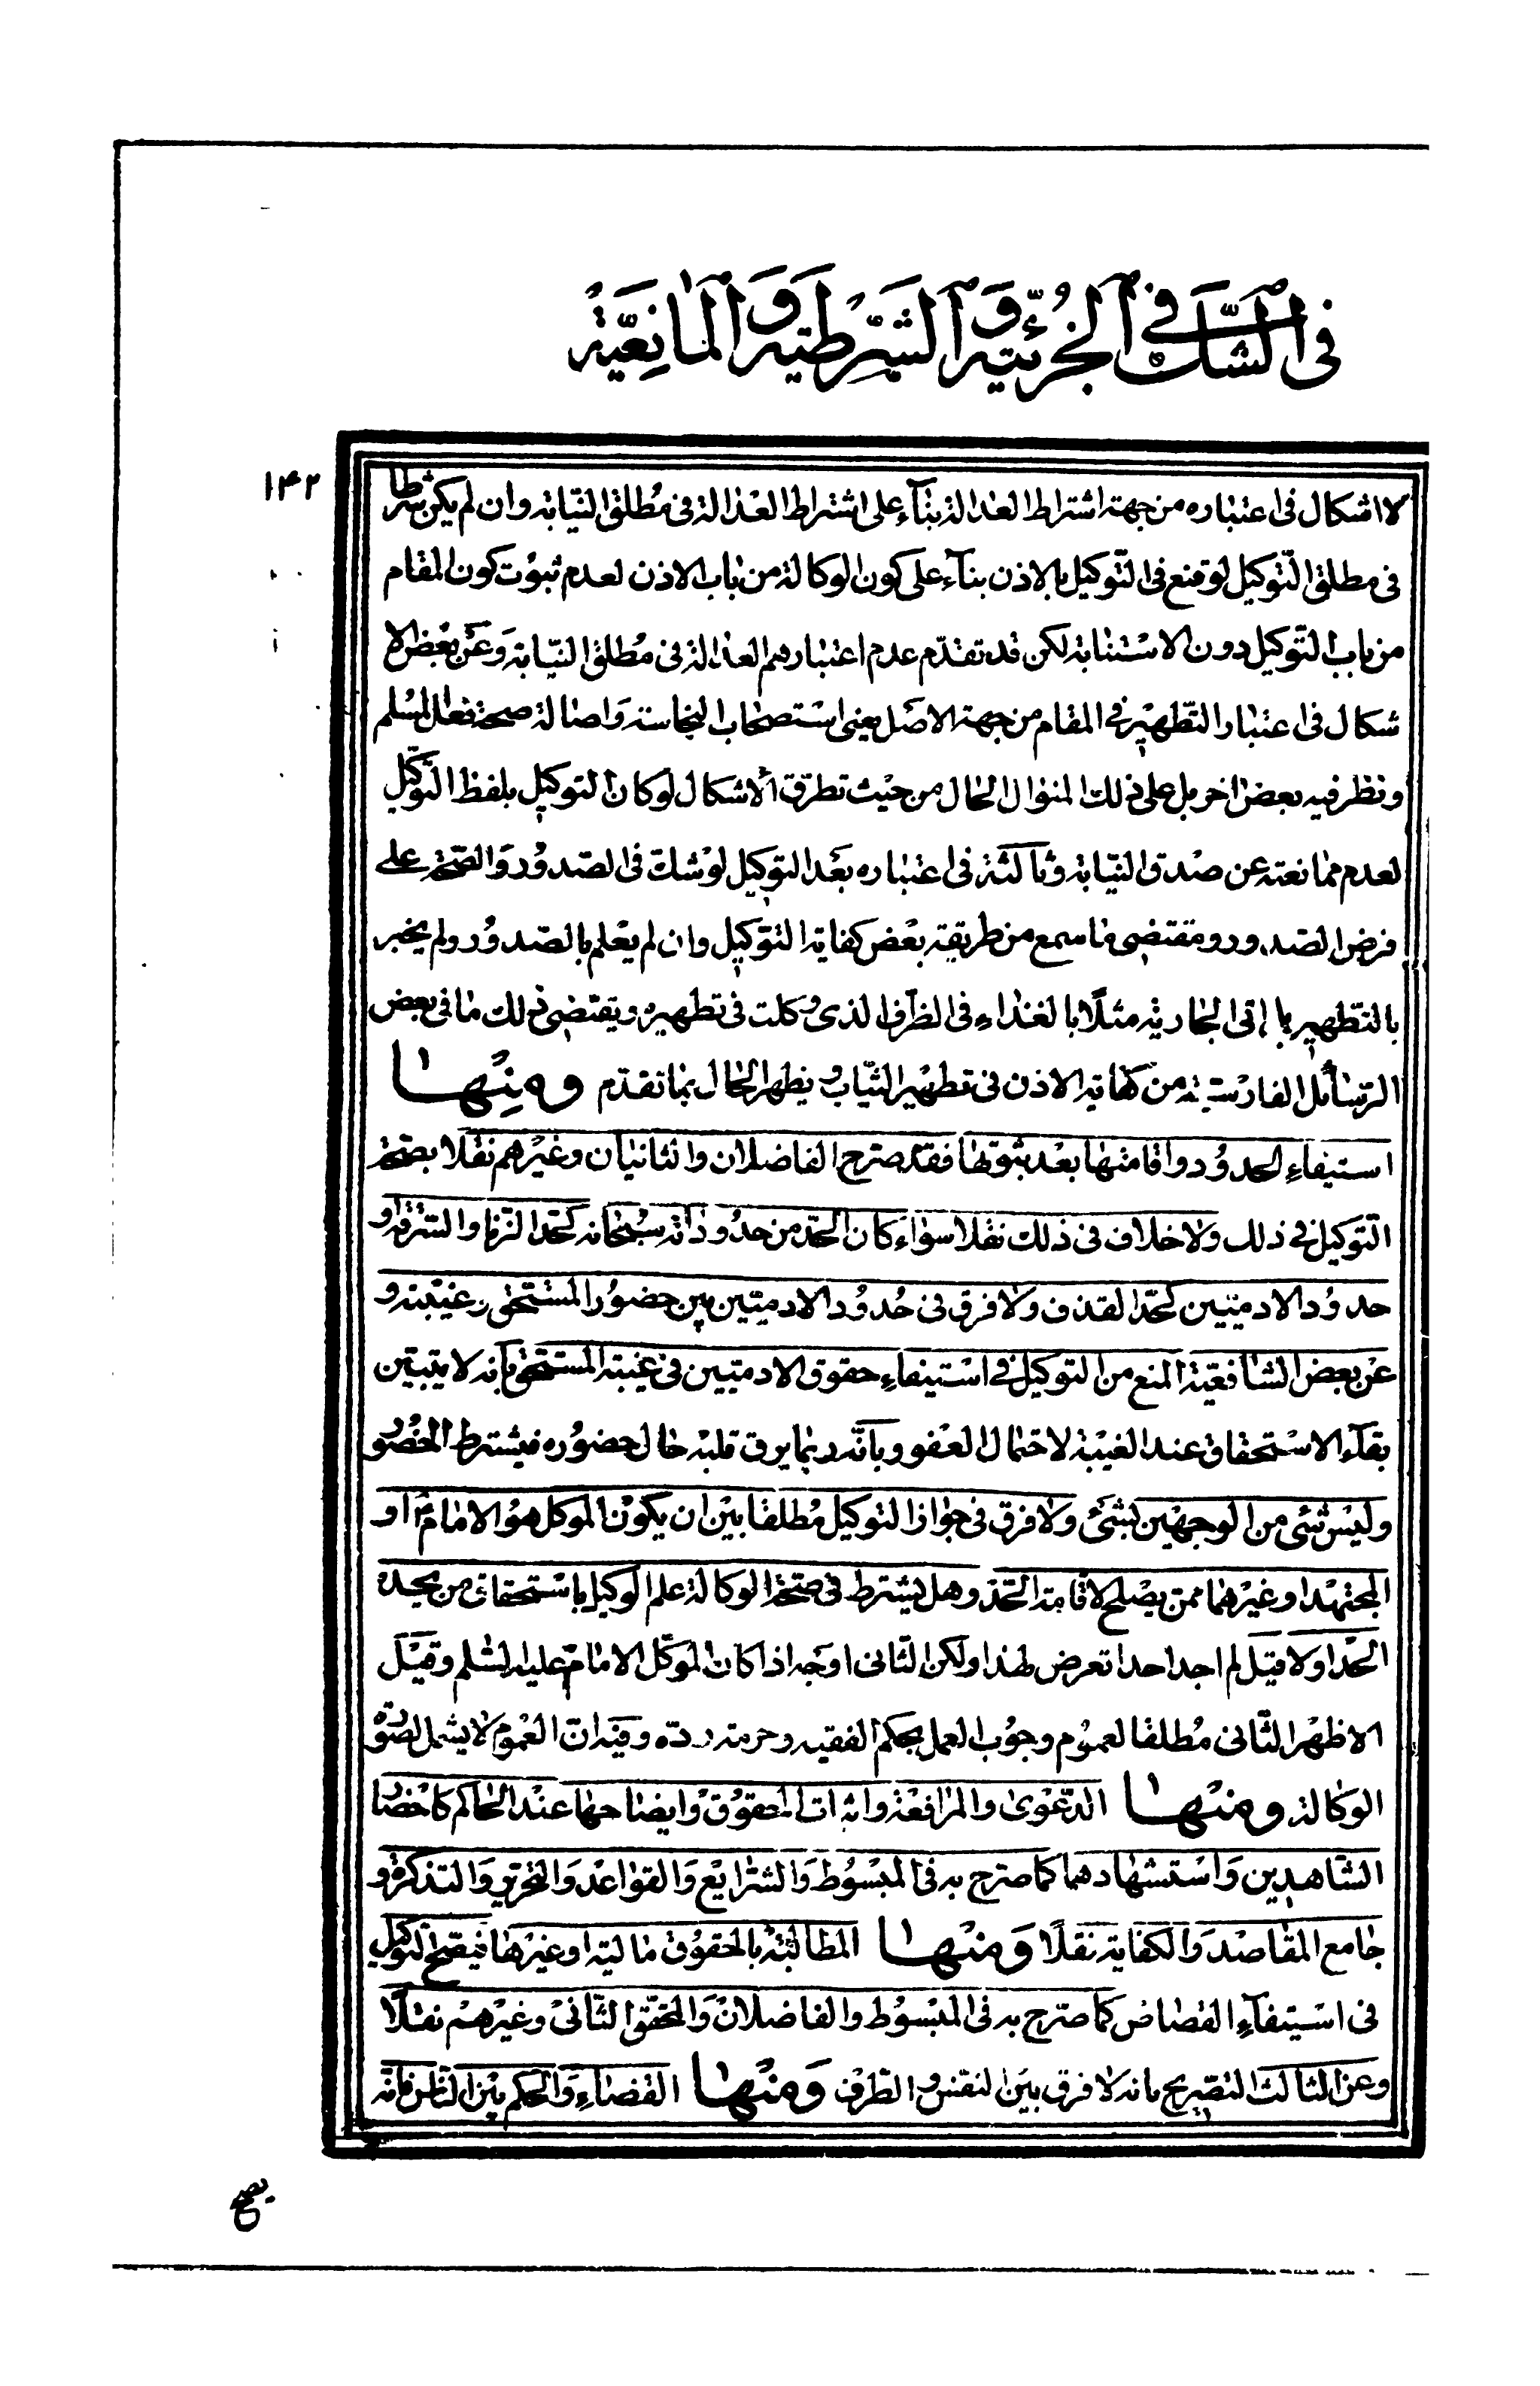 في الشك في الجزئية و الشرطية و المانعية
١٤٢
لا اشكال فى اعتباره من جهة اشتراط العدالة بنآء على اشتراط العدالة فى مطلق النيابة وان لم يكن شرطا
فى مطلق التوكيل لو قنع فى التوكيل بالاذن بنآء على كون الوكالة من باب الاذن لعدم ثبوت كون المقام
من باب التوكيل دون الاستنابة لكن قد تقدّم عدم اعتبارهم العدالة فى مطلق النيابة وعن بعض الا
شكال فى اعتبار التطهير فى المقام من جهة الاصل يعنى استصحاب النجاسة واصالة صحة فعل المسلم
ونظر فيه بعض اخر بل على ذلك المنوال الحال من حيث تطرّق الاشكال لو كان التوكيل بلفظ التوكيل
لعدم ممانعته عن صدق النيابة وثالثة فى اعتباره بعد التوكيل لو شك فى الصدور والصّحة على
فرض الصدور ومقتضى ما سمع من طريقة بعض كفاية التوكيل وان لم يعلم بالصدور ولم يخبر
بالتطهير بل اتى الجارية مثلًا بالغذاء فى الظرف الذى وكلت فى تطهيره ويقتضى ذلك ما فى بعض
الرسائل الفارسية من كفاية الاذن فى تطهير الثياب ويظهر الحال بما تقدّم ومنها
استيفاء الحدود واقامتها بعد ثبوتها فقد صرّح الفاضلان والثانيان وغيرهم نقلا بصحّة
التوكيل فى ذلك ولا خلاف فى ذلك نقلا سواء كان الحدّ من حدود الله سبحانه كحدّ الزنا والسرقة او
حدود الادميّين كحدّ القذف ولا فرق فى حدود الادميين بين حضور المستحق وغيبته و
عن بعض الشافعيّة المنع من التوكيل فى استيفاء حقوق الادميين فى غيبة المستحق بانه لا يتبين
بقآء الاستحقاق عند الغيبة لاحتمال العفو وبانّه ربما يرق قلبه حال حضوره فيشترط الحضور
وليس شئ من الوجهين بشئ ولا فرق فى جواز التوكيل مطلقا بين ان يكون الموكل هو الامام او
المجتهد او غيرهما ممن يصلح لاقامة الحدّ وهل يشترط فى صحّة الوكالة علم الوكيل باستحقاق من يحدّه
الحدّ او لا قيل لم اجد احدا تعرض لهذا ولكن الثّانى اوجه اذا كان الموكّل الامام عليه السّلم وقيل
الاظهر الثّانى مطلقا لعموم وجوب العمل بحكم الفقيه وحرمة ردّه وفيه انّ العموم لا يشمل صورة
الوكالة ومنها الدّعوى والمرافعة واثبات الحقوق وايضاحها عند الحاكم كاحضار
الشّاهدين واستشهادهما كما صرّح به فى المبسوط والشرايع والقواعد والتحرير والتذكرة و
جامع المقاصد والكفاية نقلًا ومنها المطالبة بالحقوق مالية او غيرها فيصحّ التوكيل
فى استيفآء القصاص كما صرّح به فى المبسوط والفاضلان والمحقّق الثّانى وغيرهم نقلًا
وعن الثالث التصريح بانه لا فرق بين النفس والطّرف ومنها القضاء والحكم بين الناس فانّه
يصح